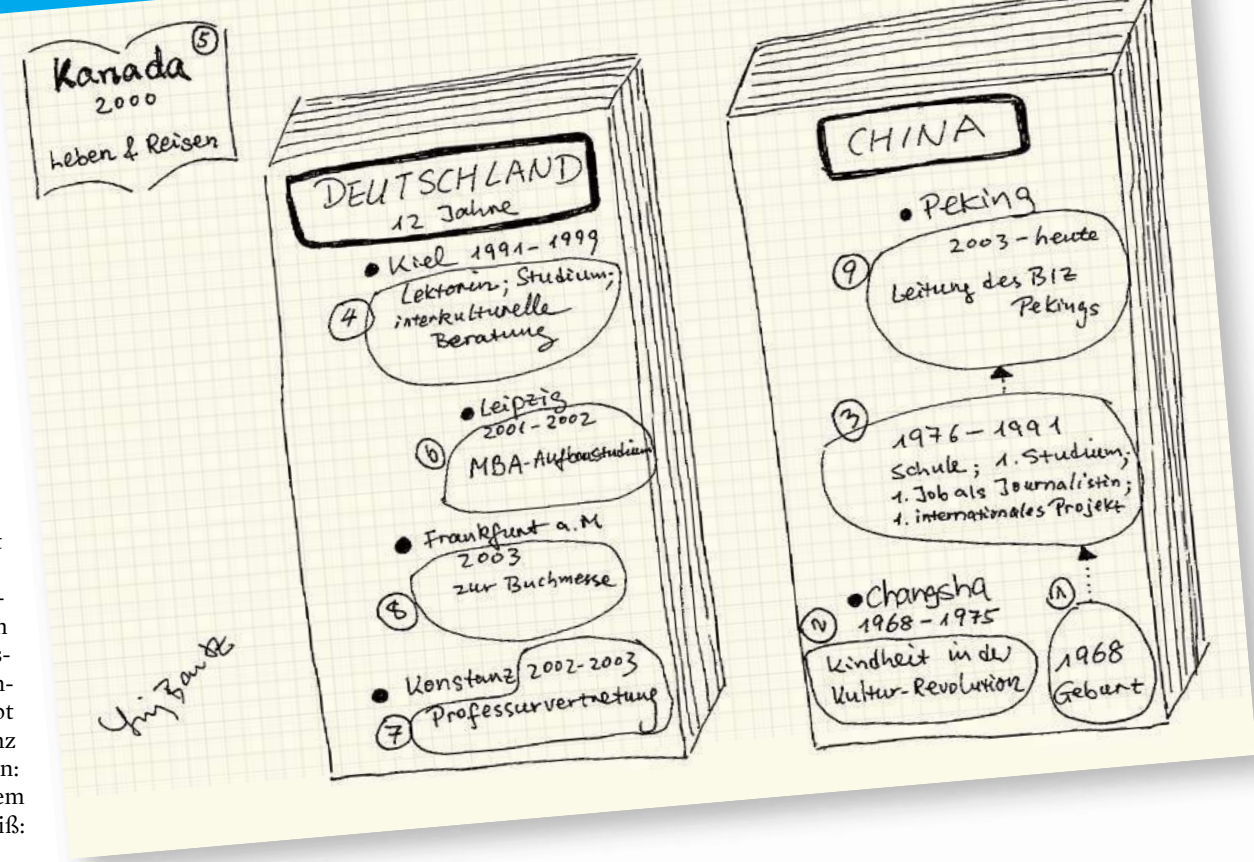 Kanada ⑤
2000
Leben & Reisen
DEUTSCHLAND
12 Jahre
• Kiel 1991-1999
④ Lektorin; Studium;
interkulturelle
Beratung
• Leipzig
2001-2002
⑥ MBA-Aufbaustudium
• Frankfurt a.M
2003
⑧ zur Buchmesse
• Konstanz 2002-2003
⑦ Professurvertretung
CHINA
• Peking
2003 - heute
⑨ Leitung des BIZ
Pekings
③ 1976-1991
Schule; 1. Studium;
1. Job als Journalistin;
1. internationales Projekt
• Changsha
1968-1975
② Kindheit in der
Kultur-Revolution
①
1968
Geburt
nz
n:
em
iß: